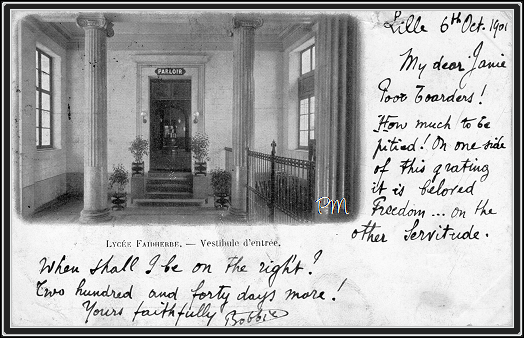 Lille 6th Oct. 1901
My dear Janie
Poor boarders!
How much to be
pitied! On one side
of this grating
it is beloved
Freedom... on the
other Servitude.
PARLOIR
PM
LYCÉE FAIDHERBE. — Vestibule d'entrée.
When shall I be on the right?
Two hundred and forty days more!
Yours faithfully Bobbie